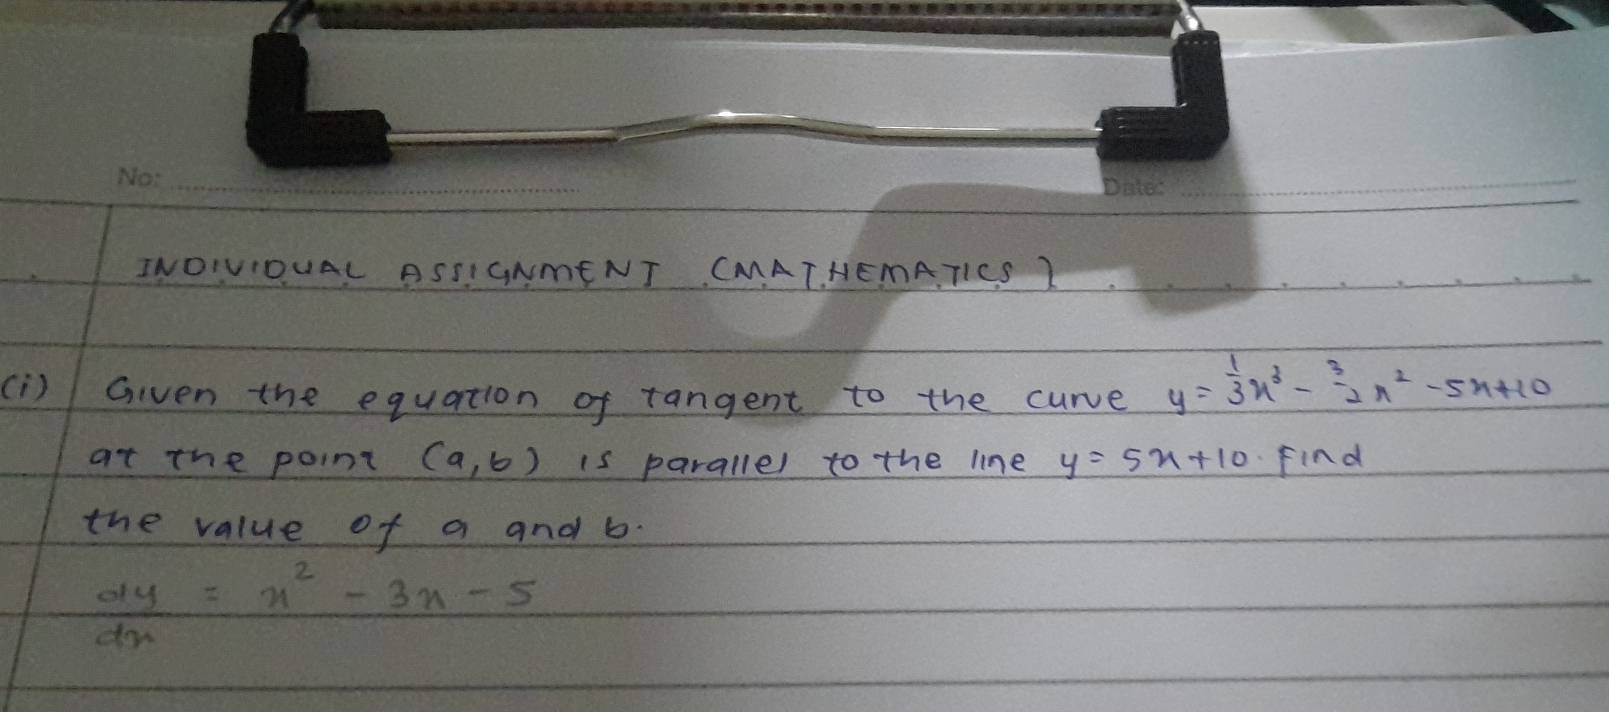 No:
Date:
INDIVIDUAL ASSIGNMENT (MATHEMATICS)
(i) Given the equation of tangent to the curve y = 1/3 x³ - 3/2 x² - 5x+10
at the point (a,b) is parallel to the line y = 5x+10. Find
the value of a and b.
dy/dx = x² - 3x - 5